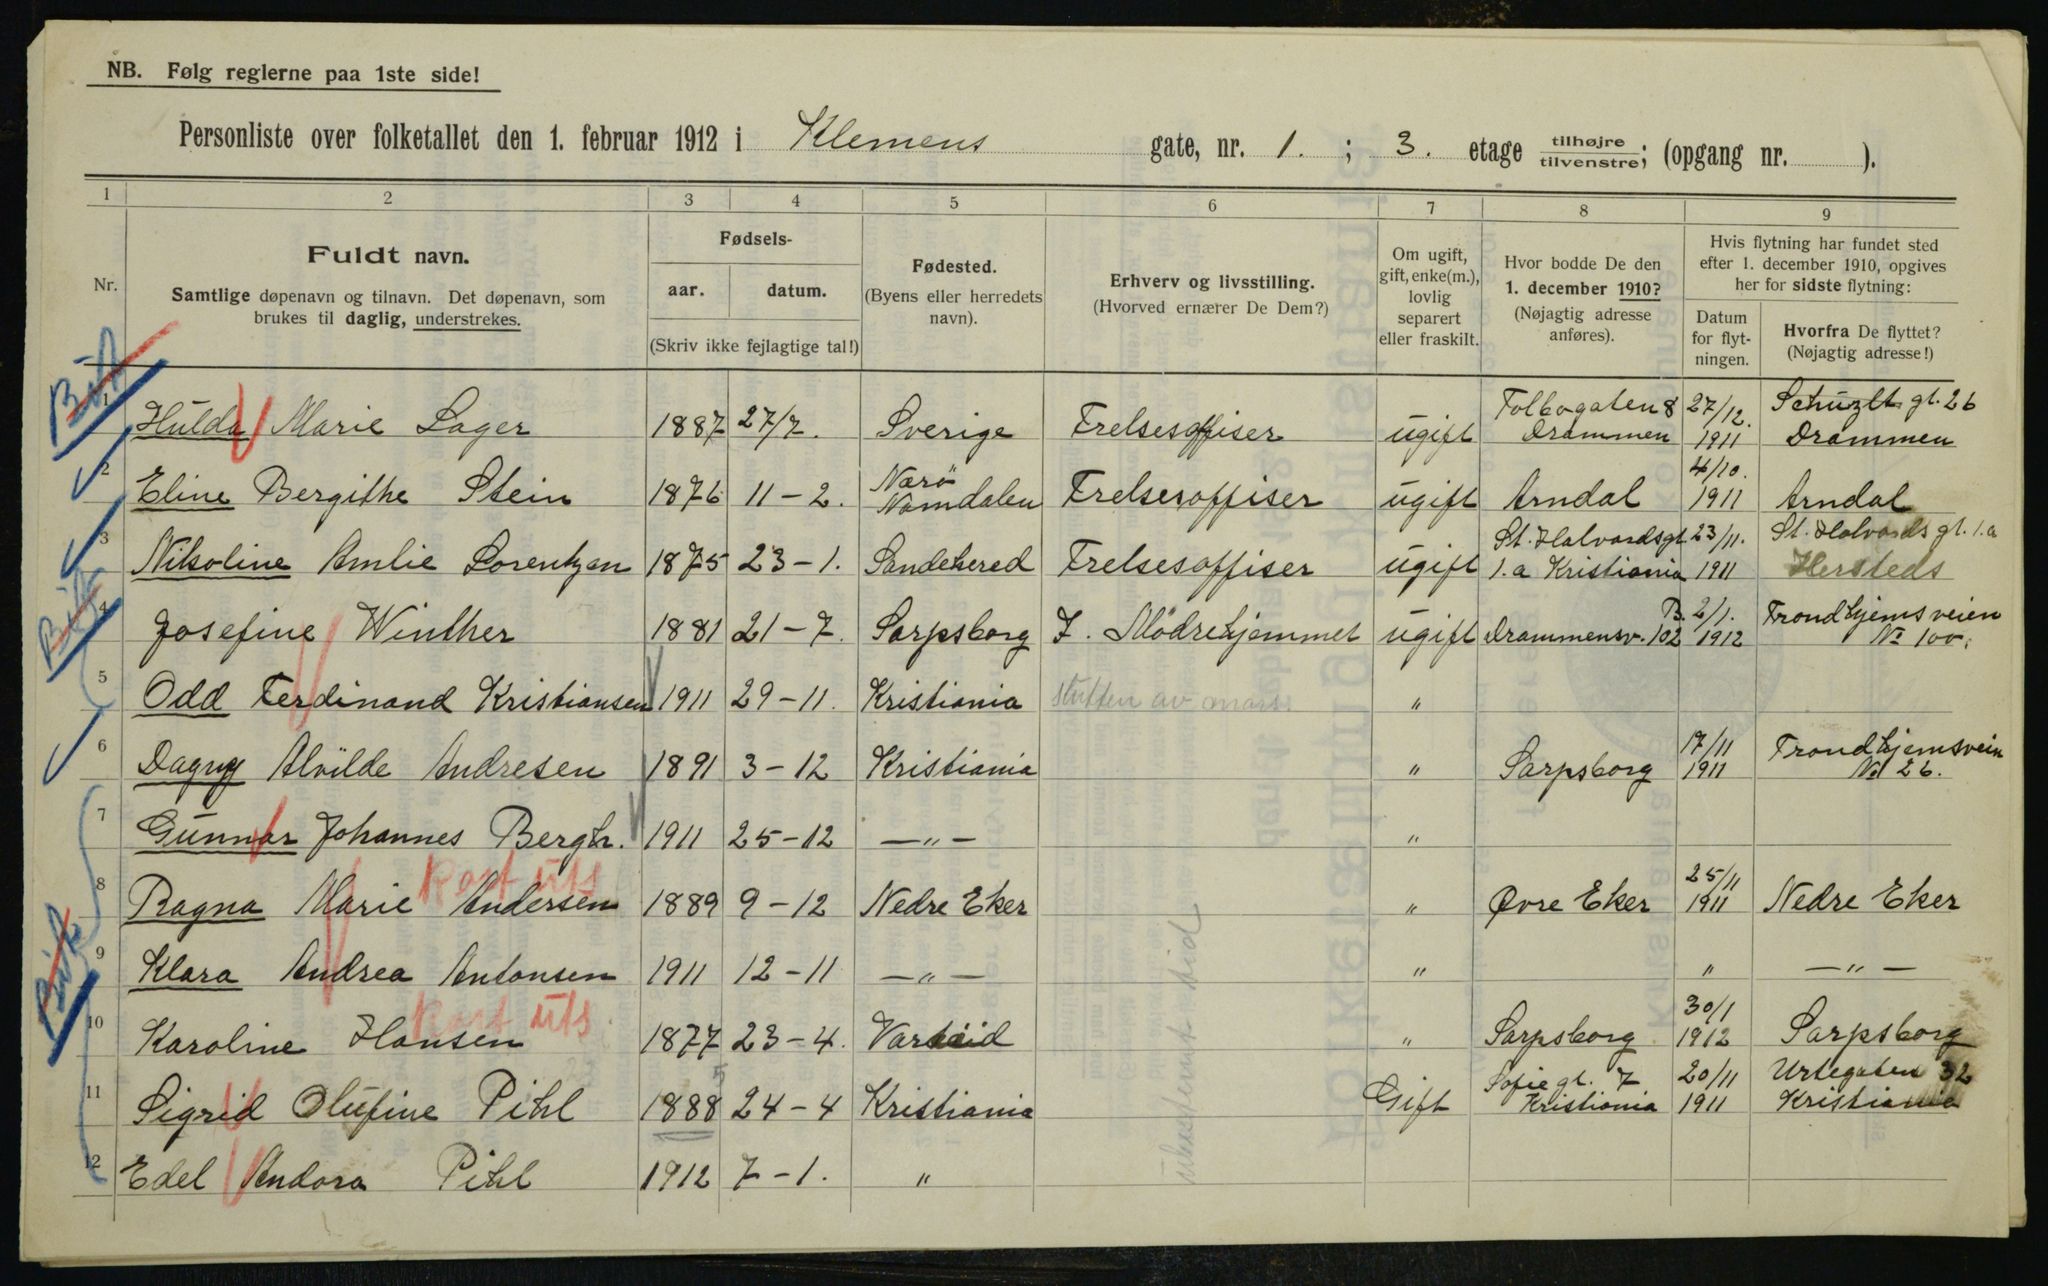 NB. Følg reglerne paa 1ste side!
Personliste over folketallet den 1. februar 1912 i Klemens gate, nr. 1. ; 3. etage tilhøjre tilvenstre; (opgang nr. ).
1 2 3 4 5 6 7 8 9
Nr.
Fuldt navn.
Samtlige døpenavn og tilnavn. Det døpenavn, som
brukes til daglig, understrekes.
Fødsels-
aar. datum.
(Skriv ikke fejlagtige tal!)
Fødested.
(Byens eller herredets
navn).
Erhverv og livsstilling.
(Hvorved ernærer De Dem?)
Om ugift,
gift, enke(m.),
lovlig
separert
eller fraskilt.
Hvor bodde De den
1. december 1910?
(Nøjagtig adresse
anføres).
Hvis flytning har fundet sted
efter 1. december 1910, opgives
her for sidste flytning:
Datum
for flyt-
ningen.
Hvorfra De flyttet?
(Nøjagtig adresse!)
1 Hulda Marie Lager 1887 27/7. Sverige Frelsesoffiser ugift Tolbogaten 8 Drammen 27/12. 1911 Schuzlt gt. 26 Drammen
2 Eline Bergithe Stein 1876 11-2. Nærö Namdalen Frelsesoffiser ugift Arndal 4/10. 1911 Arndal
3 Nikoline Amlie Lorentzen 1875 23-1. Sandehered Frelsesoffiser ugift St. Halvardsgt 1.a Kristiania 23/11. 1911 St. Halvards gt. 1.a
4 Josefine Winther 1881 21-7. Sarpsborg F. Mödrehjemmet ugift Drammensv. 102 B. 2/1. 1912 Trondhjemsveien No 100.
5 Odd Ferdinand Kristiansen 1911 29-11. Kristiania "
6 Dagny Alvilde Andresen 1891 3-12 Kristiania " Sarpsborg 17/11 1911 Trondhjemsvein No 26.
7 Gunnar Johannes Bergh. 1911 25-12 —"— "
8 Ragna Marie Andersen 1889 9-12 Nedre Eker " Øvre Eker 25/11 1911 Nedre Eker
9 Klara Andrea Antonsen 1911 12-11 —"— " " —"—
10 Karoline Hansen 1877 23-4. " Sarpsborg 30/1 1912 Sarpsborg
11 Sigrid Olufine Pihl 1888 24-4 Kristiania Gift Sofie gt. 7 Kristiania 20/11 1911 Urtegaten 32 Kristiania
12 Edel Andora Pihl 1912 7-1. "